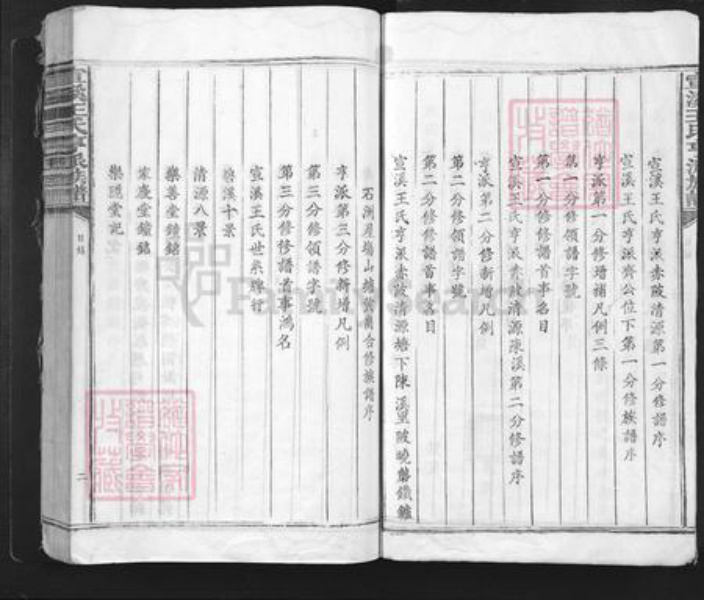 宣溪王氏亨派赤陂清源第一分修譜序
宣溪王氏亨派齊公位下第一分修族譜序
亨派第一分修增補凡例三條
第一分修領譜字號
第一分修修譜首事名目
宣溪王氏亨派赤陂清源陳溪第二分修譜序
亨派第二分修新增凡例
第二分修領譜字號
第二分修修譜首事名目
宣溪王氏亨派赤陂清源塘下陳溪里陂曉
石洲
合修族譜序
亨派第三分修新增凡例
第三分修領譜字號
第三分修修譜首事鴻名
宣溪王氏世系牌行
溪十景
清源八景
樂善堂鐘銘
家慶堂鐘銘
樂
堂記
宣溪王氏亨派族譜
目錄
二
宣溪王氏亨派族譜
FamilySearch